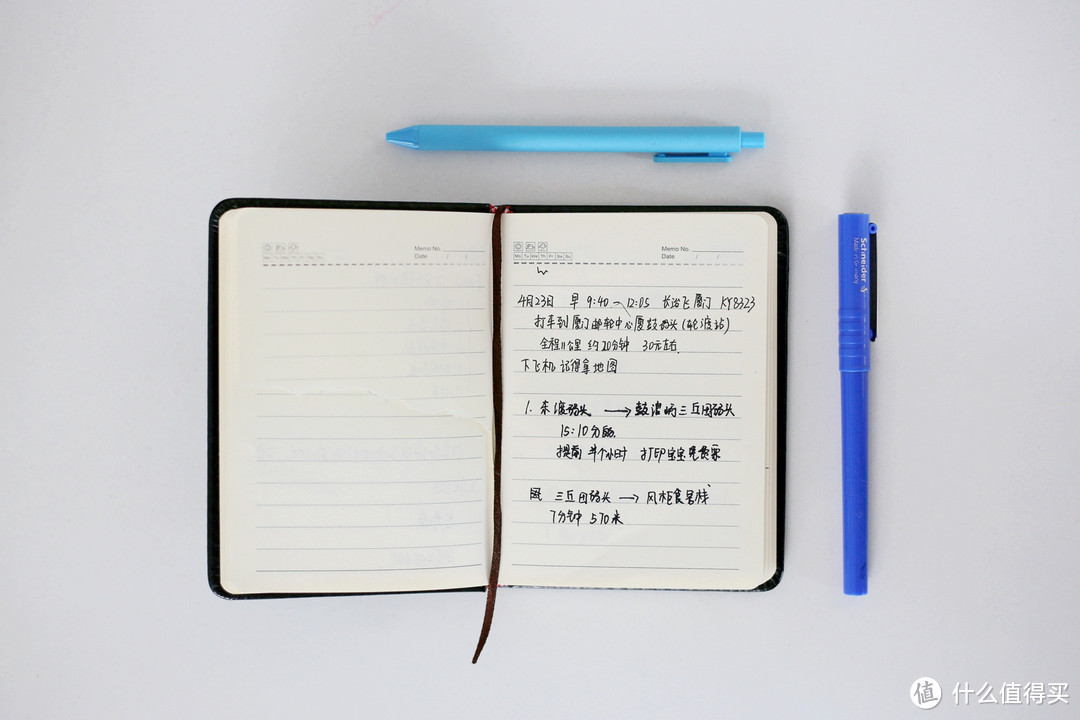 Memo No.
Date / /
Memo No.
Date / /
Mo Tu We Th Fr Sa Su
4月23日 早 9:40 — 12:05 长治飞厦门 KY8323
打车到厦门邮轮中心厦鼓码头(轮渡站)
全程11公里 约20分钟 30元左右.
下飞机记得拿地图
1. 东渡码头 → 鼓浪屿三丘田码头
15:10分
提前半个小时 打印宝宝免费票
三丘田码头 → 风柜食星栈
7分钟 570米
Schneider
Made in Germany
值 什么值得买